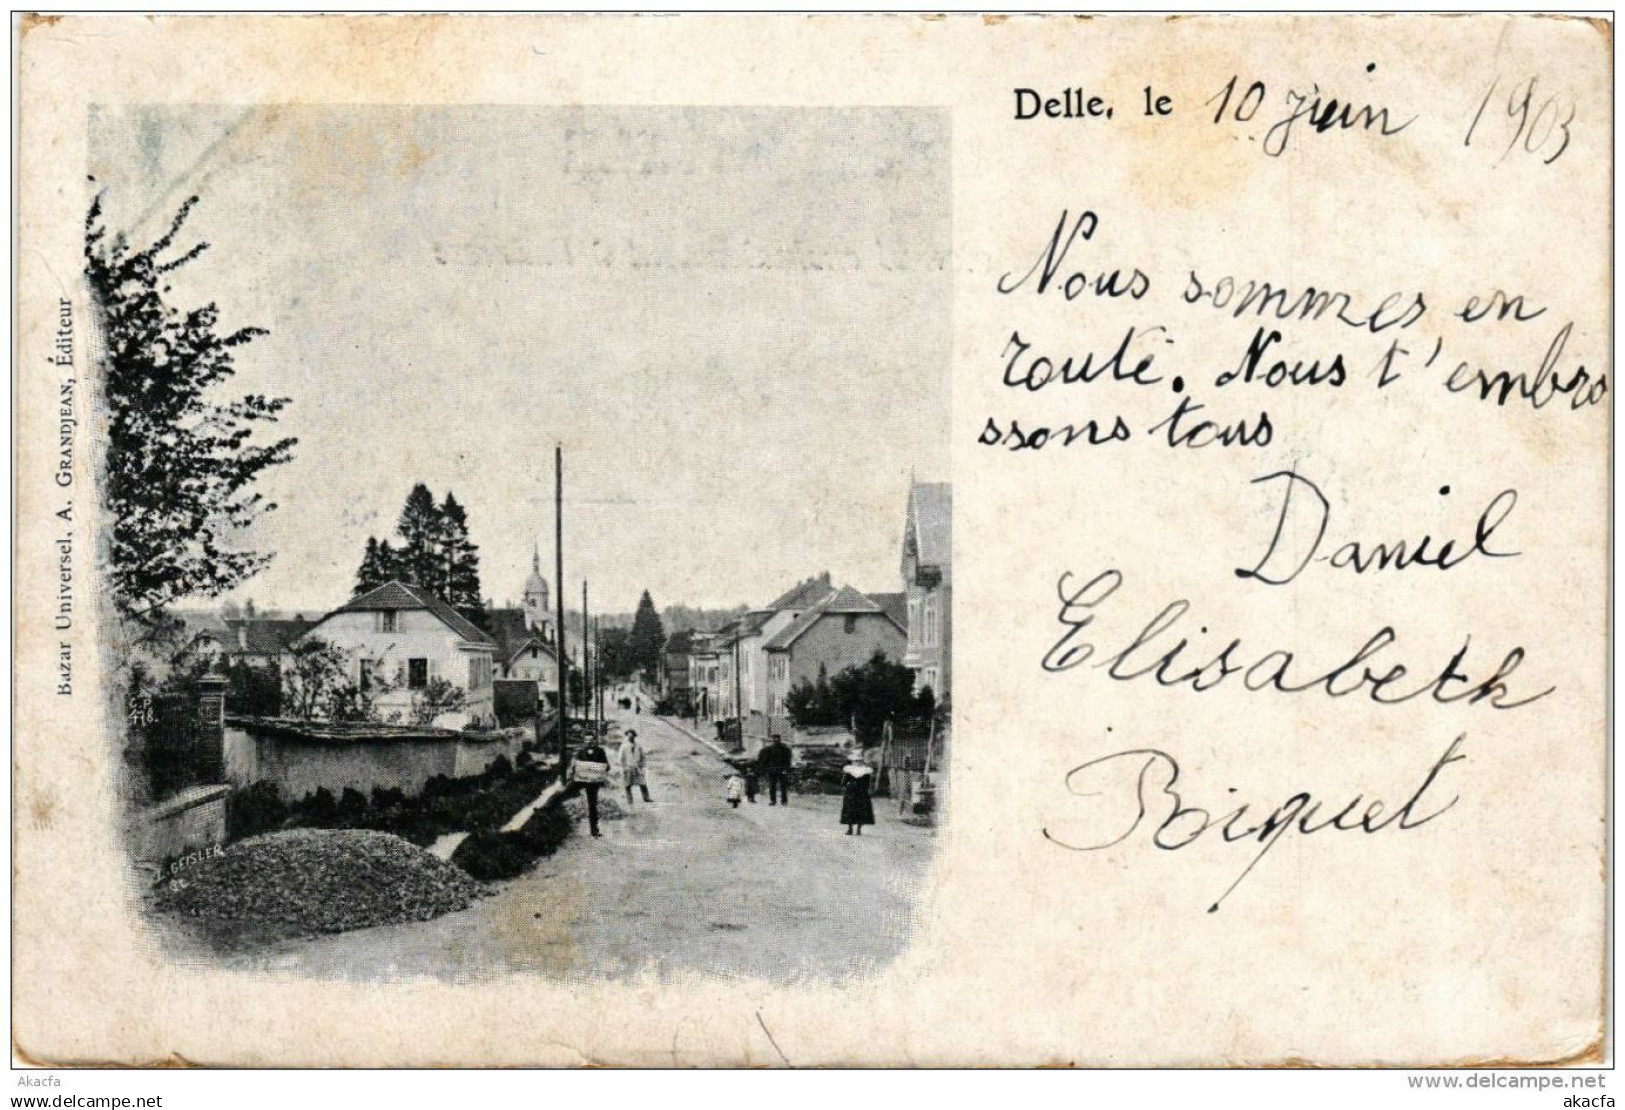 Delle, le 10 juin 1903
Nous sommes en
route. Nous t'embra
ssons tous
Daniel
Elisabeth
Biquet
Bazar Universel, A. GRANDJEAN, Éditeur
C.P.
418.
L. GEISLER
Akacfa
akacfa.com
www.delcampe.net
akacfa